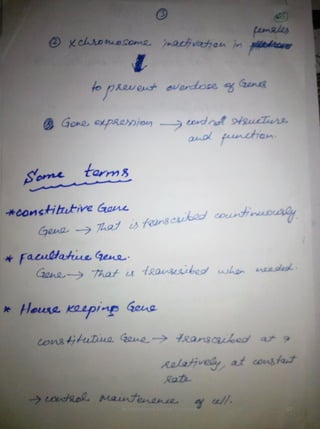 ③
females
② X chromosome inactivation in
to prevent overdose of Genes
③ Gene expression → control structure
and function.
Some terms
*constitutive Gene
Gene → That is transcribed countinuously.
* Facultative Gene.
Gene → That is transcribed when needed.
* House keeping Gene
constitutive Gene → transcribed at a
relatively, at constant
rate
→ control maintenence of cell.